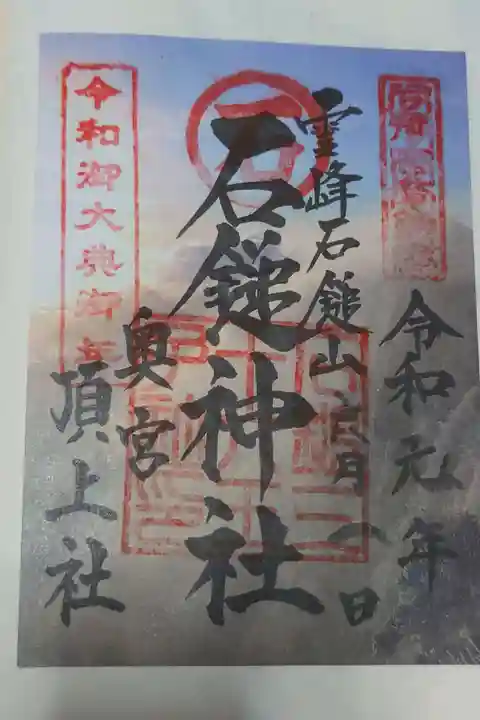 令和元年
霊峰石鎚山
六月一日
石鎚神社
奥宮
頂上社
令和御大典御